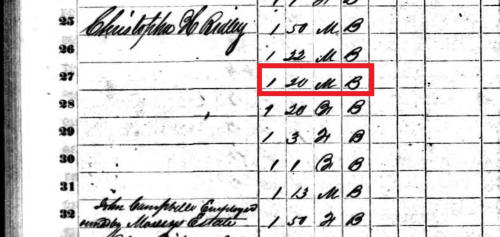 25 Christopher H Ridley 1 50 M B
26 1 22 M B
27 1 20 M B
28 1 20 F B
29 1 3 F B
30 1 1 F B
31 1 13 M B
32 John Campbell Employed
owned by Estate 1 50 F B